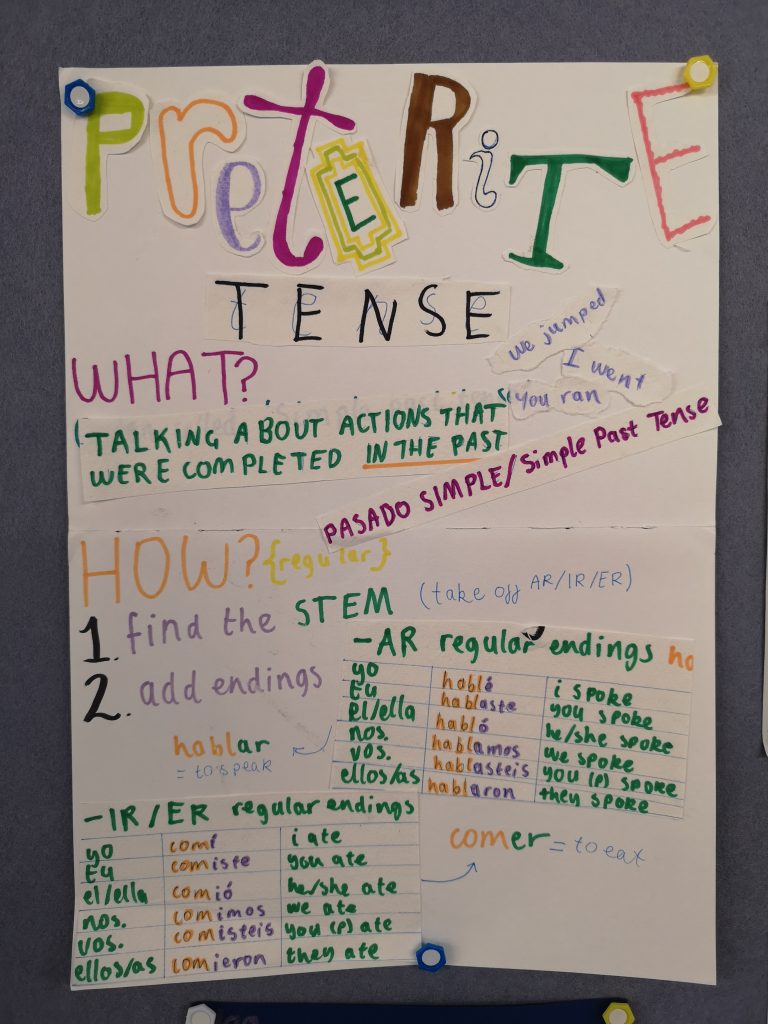 PretERiTE
TENSE
we jumped
I went
you ran
WHAT?
TALKING ABOUT ACTIONS THAT
WERE COMPLETED IN THE PAST
PASADO SIMPLE/Simple Past Tense
HOW? {regular}
1. find the STEM (take off AR/IR/ER)
2. add endings
-AR regular endings ha
yo hablé i spoke
tu hablaste you spoke
el/ella habló he/she spoke
nos. hablamos we spoke
vos. hablasteis you (p) spoke
ellos/as hablaron they spoke
hablar
= to speak
-IR/ER regular endings
yo comí i ate
tu comiste you ate
el/ella comió he/she ate
nos. comimos we ate
vos. comisteis you (p) ate
ellos/as comieron they ate
comer = to eat